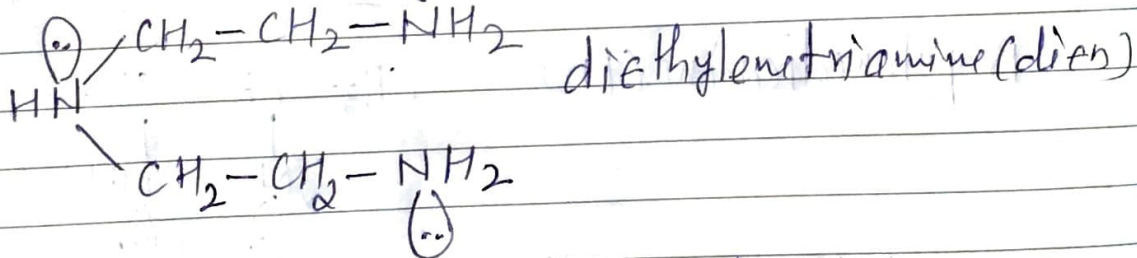 CH2-CH2-NH2
diethylenetriamine (dien)
HN
CH2-CH2-NH2